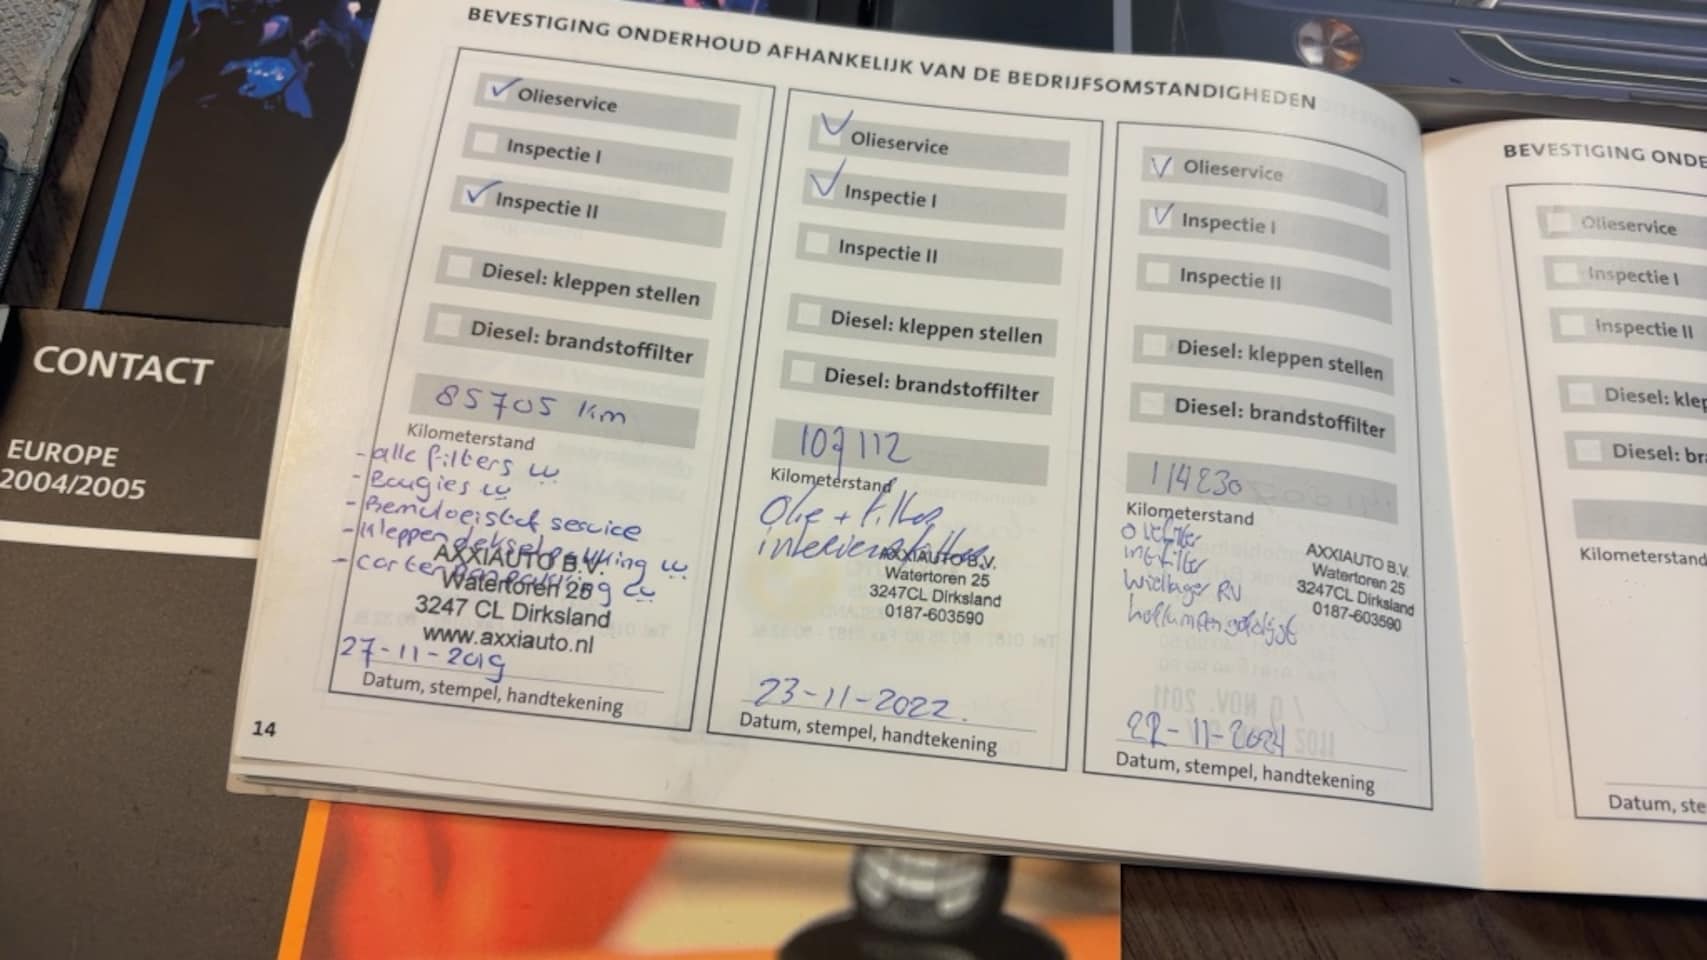 BEVESTIGING ONDERHOUD AFHANKELIJK VAN DE BEDRIJFSOMSTANDIGHEDEN
Olieservice
Inspectie I
Inspectie II
Diesel: kleppen stellen
Diesel: brandstoffilter
85705 km
Kilometerstand
- alle filters
- Bougies
- Remvloeistof service
- Kleppendekselpakking
- carterpanpakking
AXXIAUTO B.V.
Watertoren 25
3247 CL Dirksland
www.axxiauto.nl
27-11-2019
Datum, stempel, handtekening
14
Olieservice
Inspectie I
Inspectie II
Diesel: kleppen stellen
Diesel: brandstoffilter
107112
Kilometerstand
Olie + filter
interieurfilter
AXXIAUTO B.V.
Watertoren 25
3247CL Dirksland
0187-603590
23-11-2022.
Datum, stempel, handtekening
Olieservice
Inspectie I
Inspectie II
Diesel: kleppen stellen
Diesel: brandstoffilter
114230
Kilometerstand
oliefilter
int filter
Wiellager RV
AXXIAUTO B.V.
Watertoren 25
3247CL Dirksland
0187-603590
22-11-2024
Datum, stempel, handtekening
BEVESTIGING ONDE
Olieservice
Inspectie I
Inspectie II
Diesel: klep
Diesel: br
Kilometerstand
Datum, ste
CONTACT
EUROPE
2004/2005